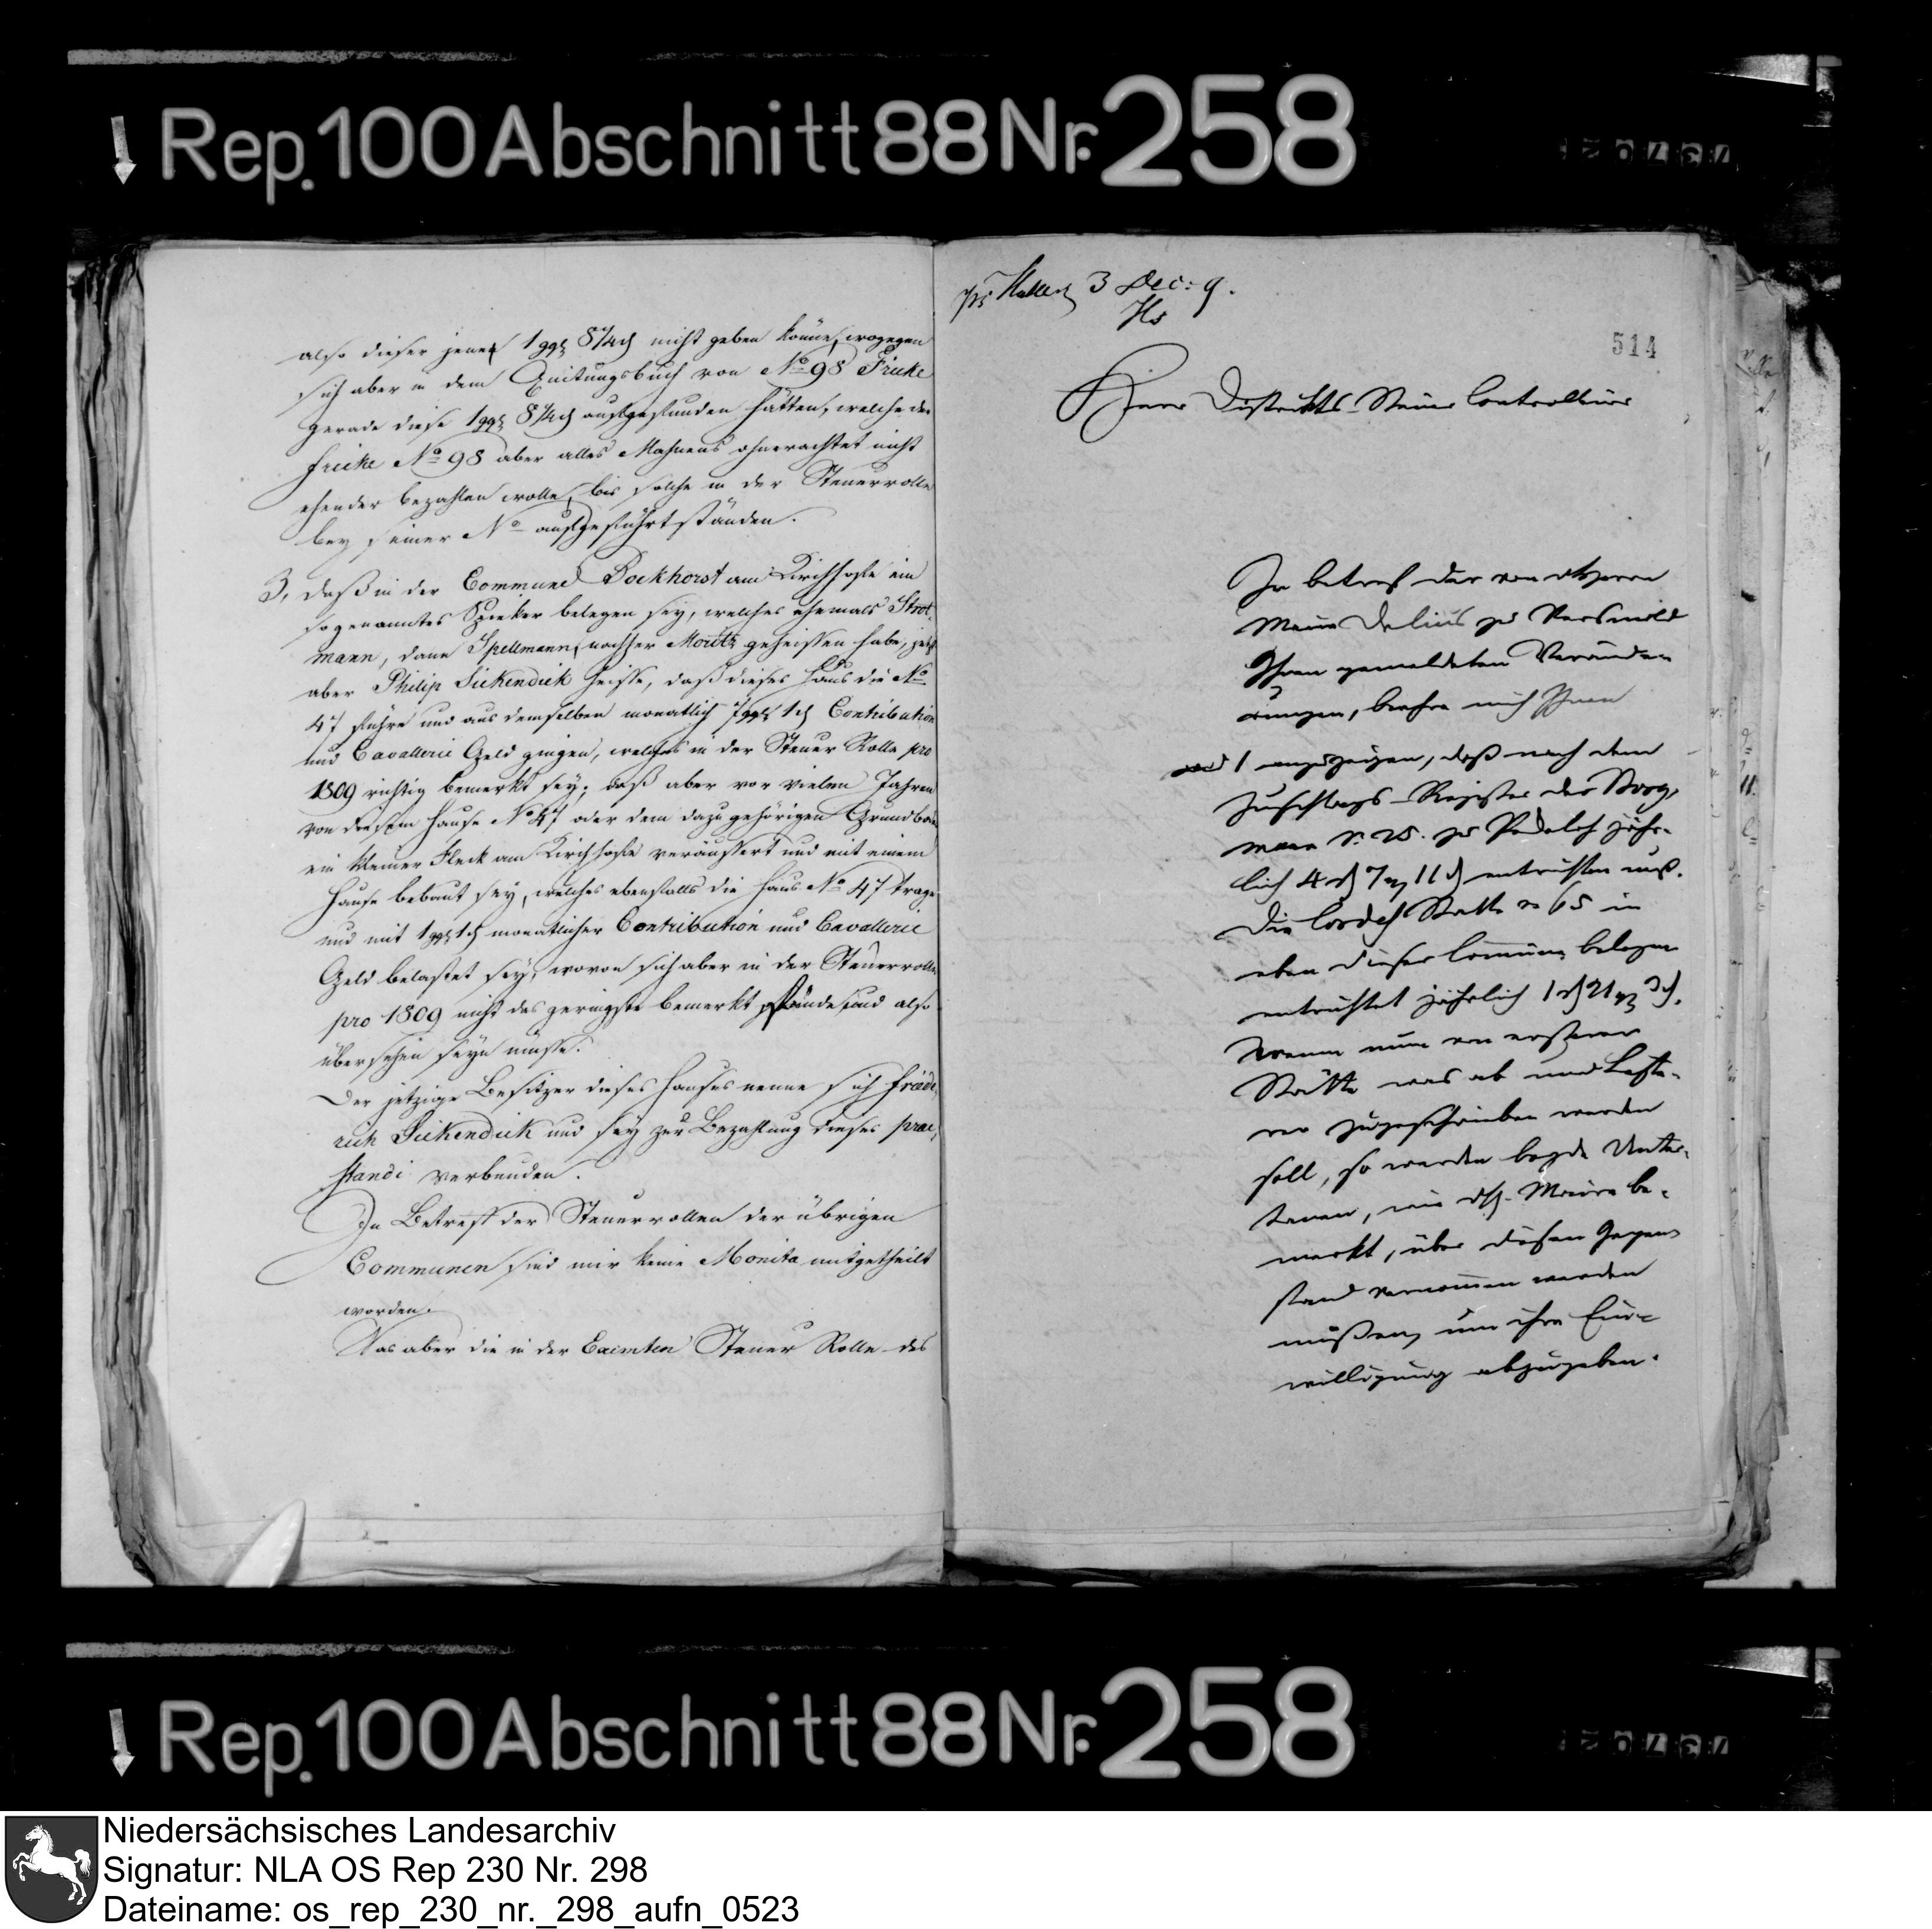 Rep. 100 Abschnitt 88 Nr. 258
also dieser jene 1 ggl 8 1/4 d nicht geben könne, wogegen
sich aber in dem Quitungsbuch von No 98 Fricke
gerade diese 1 ggl 8 1/4 d ausgestunden hätten, welche der
Fricke No 98 aber alles Mahnens ohnerachtet nicht
ehender bezahlen wolle, bis solche in der Steuerrolle
bey seiner No aufgeführt ständen.
3, daß in der Commune Bockhorst am Kirchhofe ein
sogenanntes Spieker belegen sey, welches ehemals Strot-
mann, dann Spellmann, nachher Moritz geheissen habe, jetzt
aber Philip Siekendiek heisse, daß dieses Haus die No
47 führe und aus demselben monatlich 7 ggl 1 d Contribution
und Cavallerie Geld gingen, welches in der Steuer Rolle pro
1809 richtig bemerkt sey; daß aber vor vielen Jahren
von diesem Hause No 47 oder dem dazu gehörigen Grundboden
ein kleiner Fleck am Kirchhofe veräussert und mit einem
Hause bebaut sey, welches ebenfalls die Haus No 47 trage
und mit 1 ggl 1 d monatlicher Contribution und Cavallerie
Geld belastet sey, wovon sich aber in der Steuerrolle
pro 1809 nicht das geringste bemerkt fände und also
übersehen seyn müsse.
Der jetzige Besitzer dieses Hauses nenne sich Friede-
rich Siekendiek und sey zur Bezahlung dieses prae-
standi verbunden.
In Betreff der Steuerrollen der übrigen
Communen sind mir keine Monita mitgetheilt
worden.
Was aber die in der Eximten Steuer Rolle des
ps Halle d 3 Dec: 9.
514
Herr Distrikts-Steuer Controlleur
In betref der von dem Herrn
Maire Delius zu Versmold
Ihnen gemeldeten Verände-
rungen, beehre mich Ihnen
ad 1 anzuzeigen, daß nach dem
Zuschlags-Register der
mann n. 25. zu jähr-
lich 4 rt 7 ggl 11 d entrichten muß.
Die Stätte no 65 in
eben dieser Commune belegen
entrichtet jährlich 1 rt 21 ggl 3 d.
Wenn nun von ersterer
Stätte was ab und letzte-
rer zugeschrieben werden
soll, so werden beyde Unter-
tanen, wie H. Maire be-
merkt, über diesen Gegen-
stand vernommen werden
müßen, um ihre Ein-
willigung abzugeben.
Rep. 100 Abschnitt 88 Nr. 258
Niedersächsisches Landesarchiv
Signatur: NLA OS Rep 230 Nr. 298
Dateiname: os_rep_230_nr._298_aufn_0523